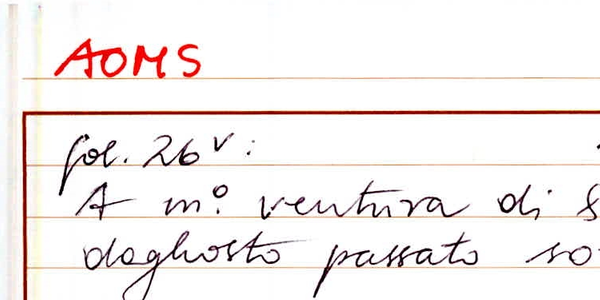 AOMS
fol. 26v:
A m.º ventura di
daghosto passato